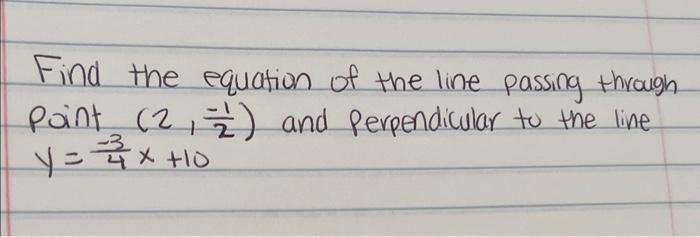 Find the equation of the line passing through
point (2, -1/2) and perpendicular to the line
y = -3/4 x +10